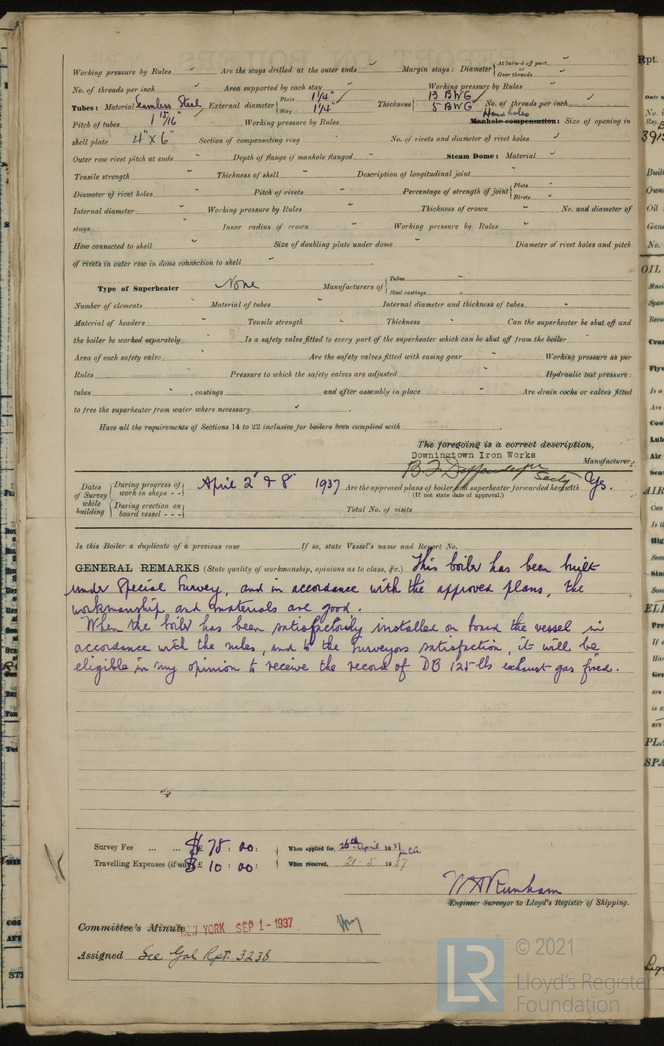 Working pressure by Rules Are the stays drilled at the outer ends Margin stays : Diameter { At turned off part, or Over threads
No. of threads per inch Area supported by each stay Working pressure by Rules
Tubes : Material Seamless Steel External diameter { Plain 1 1/4" Stay 1 1/4" Thickness { 13 BWG 5 BWG No. of threads per inch
Pitch of tubes 1 15/16" Working pressure by Rules Hand holes Manhole compensation : Size of opening in
shell plate 4" x 6" Section of compensating ring No. of rivets and diameter of rivet holes
Outer row rivet pitch at ends Depth of flange if manhole flanged Steam Dome : Material
Tensile strength Thickness of shell Description of longitudinal joint
Diameter of rivet holes Pitch of rivets Percentage of strength of joint { Plate Rivets
Internal diameter Working pressure by Rules Thickness of crown No. and diameter of
stays Inner radius of crown Working pressure by Rules
How connected to shell Size of doubling plate under dome Diameter of rivet holes and pitch
of rivets in outer row in dome connection to shell
Type of Superheater None Manufacturers of { Tubes Steel castings
Number of elements Material of tubes Internal diameter and thickness of tubes
Material of headers Tensile strength Thickness Can the superheater be shut off and
the boiler be worked separately Is a safety valve fitted to every part of the superheater which can be shut off from the boiler
Area of each safety valve Are the safety valves fitted with easing gear Working pressure as per
Rules Pressure to which the safety valves are adjusted Hydraulic test pressure :
tubes , castings and after assembly in place Are drain cocks or valves fitted
to free the superheater from water where necessary
Have all the requirements of Sections 14 to 22 inclusive for boilers been complied with
The foregoing is a correct description,
Downingtown Iron Works
Secty Manufacturer.
Dates of Survey while building { During progress of work in shops - - } April 2 & 8 1937 Are the approved plans of boiler and superheater forwarded herewith Yes.
(If not state date of approval.)
{ During erection on board vessel - - - } Total No. of visits
Is this Boiler a duplicate of a previous case If so, state Vessel's name and Report No.
GENERAL REMARKS (State quality of workmanship, opinions as to class, &c.) This boiler has been built
under Special Survey, and in accordance with the approved plans, the
workmanship and materials are good.
When the boiler has been satisfactorily installed on board the vessel in
accordance with the rules, and to the Surveyors satisfaction, it will be
eligible in my opinion to receive the record of DB 125 lbs exhaust gas fired.
Survey Fee ... ... $ 75 : 00 : When applied for, 26th April 1937
Travelling Expenses (if any) $ 10 : 00 : When received, 21-5 1937
Engineer Surveyor to Lloyd's Register of Shipping.
Committee's Minute NEW YORK SEP 1-1937
Assigned See Gal Rpt. 3238
© 2021
LR Lloyd's Register
Foundation